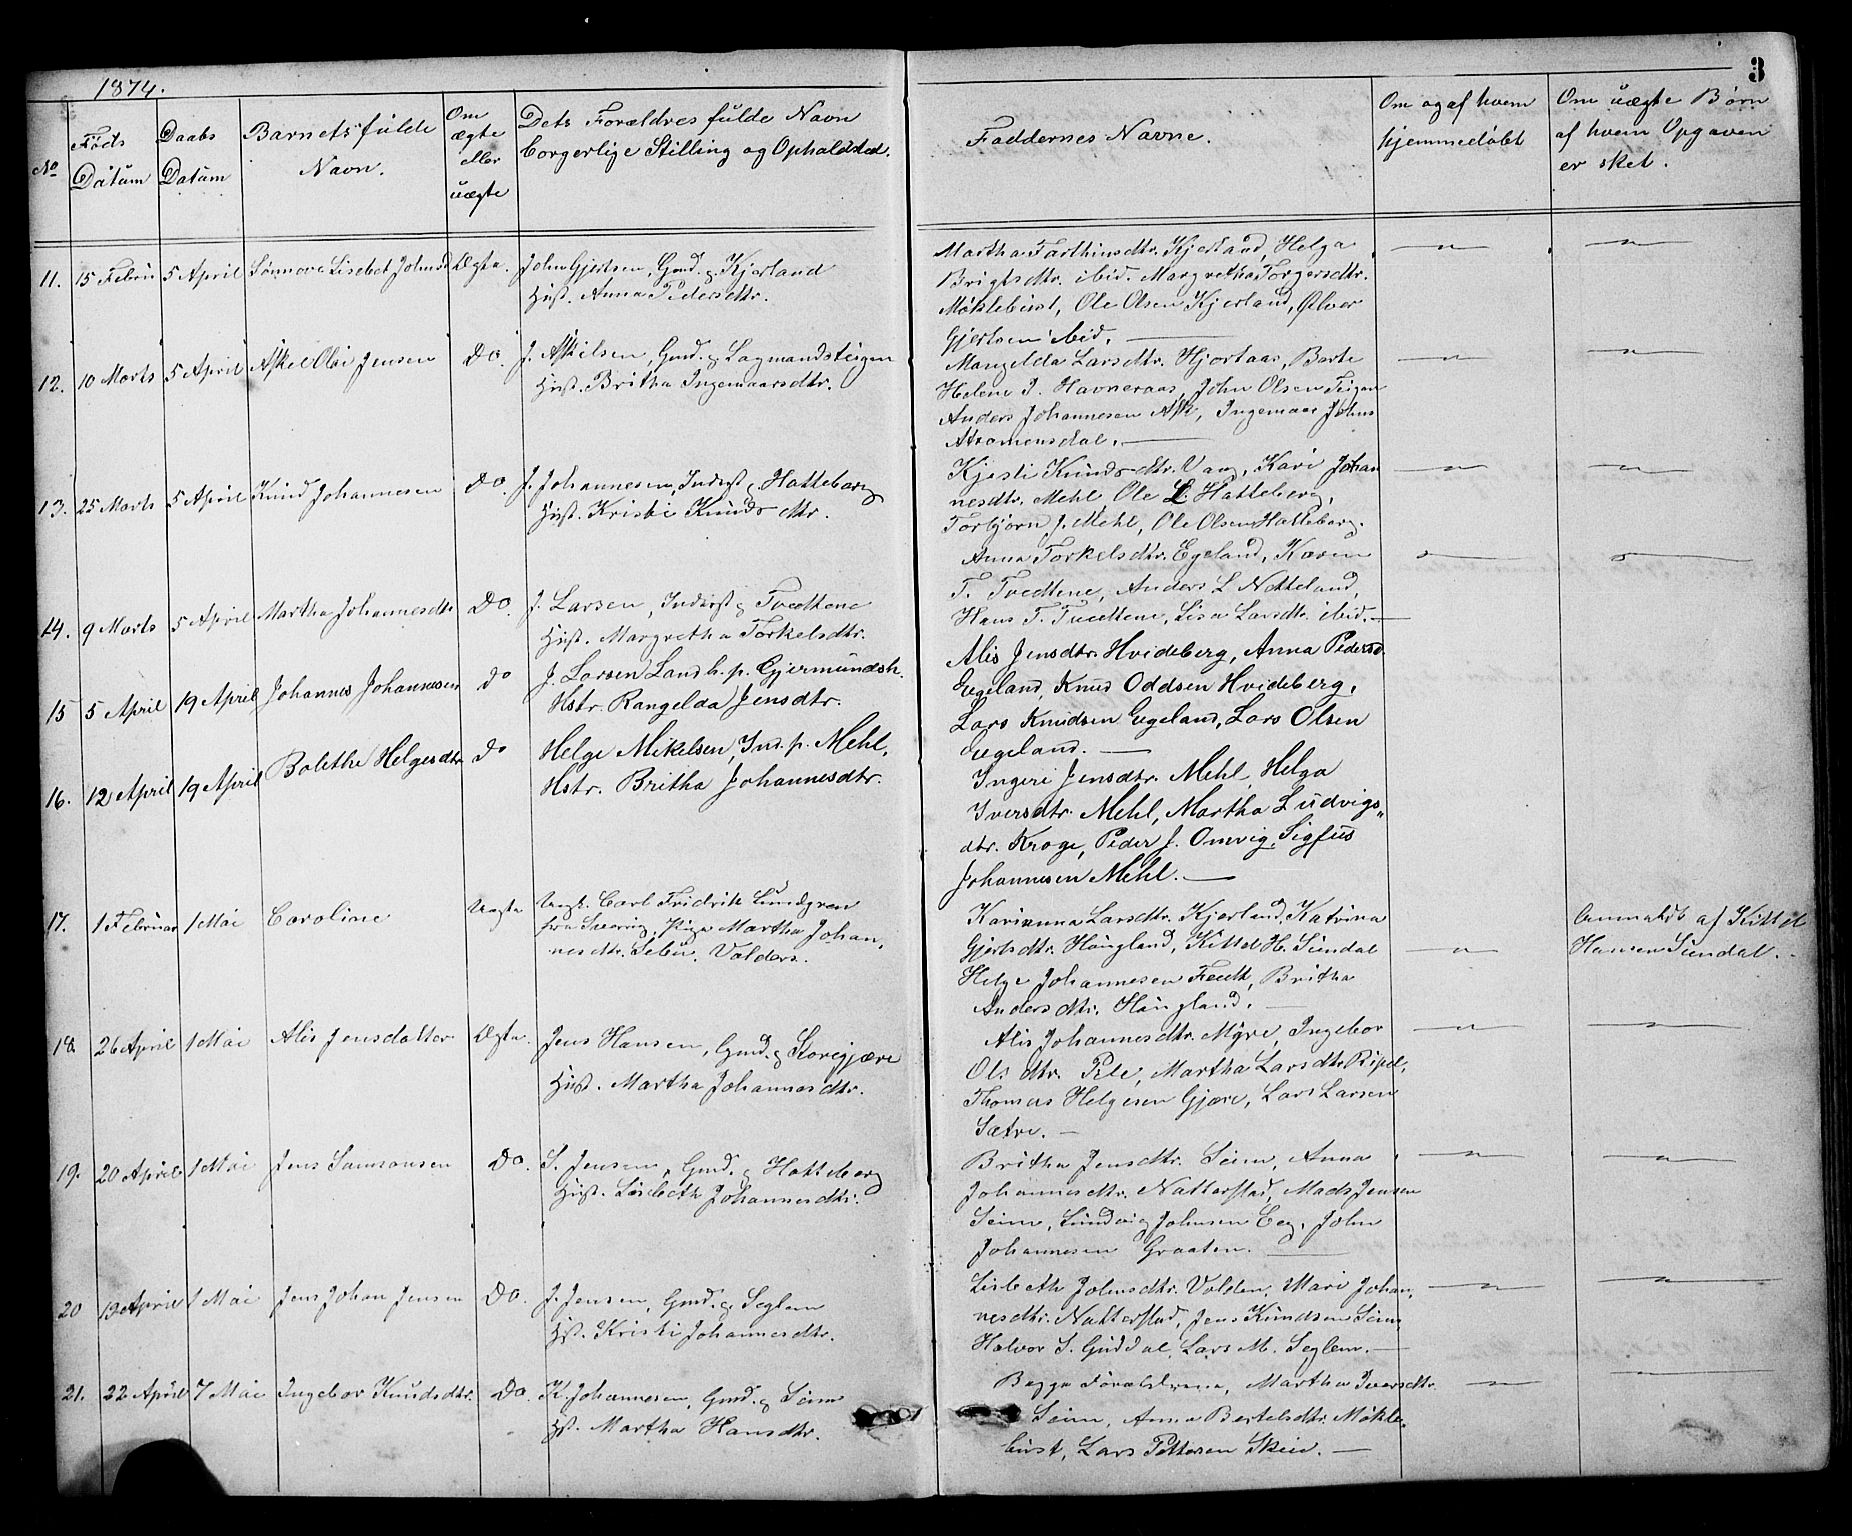 1874.
3
No
Föds Datum
Daabs Datum
Barnets fulde Navn.
Om ægte eller uægte
Dets Forældres fulde Navn borgerlige Stilling og Opholdsted.
Faddernes Navne.
Om og af hvem hjemmedøbt
Om uægte Børn af hvem Opgaven er sket.
11. 15 Febru 5 April Sønnova Lisebet Johnsd Ægte. John Gjertsen, Gmd. p Kjerland
Hust. Anna Pedersdtr.
Martha Farthinsdtr. Kjerland, Helga
Brigtsdtr. ibid. Margretha Torgersdtr.
Møklebust, Ole Olsen Kjerland, Ølver
Gjertsen ibid.
12. 10 Marts 5 April Askel Olai Jensen Do. J. Askilsen, Gmd. p Lagmandsteigen
Hust. Britha Ingemaarsdtr.
Mangelda Larsdtr. Hjortaas, Barte
Helene J. Havneraas, John Olsen Teigen
Anders Johannesen Ask, Ingemaar Johns
13. 25 Marts 5 April Knud Johannesen Do. J. Johannesen, Inderst p Hatteberg
Hust. Kristi Knudsdtr.
Kjesti Knudsdtr. Vang, Kari Johan
nesdtr. Mehl, Ole L. Hatteberg,
Torbjørn J. Mehl, Ole Olsen Hatteberg.
14. 9 Marts 5 April Martha Johannesdtr Do. J. Larsen, Inderst p Tvedtene
Hust. Margretha Torkelsdtr.
Anna Torkelsdtr. Egeland, Karen
T. Tvedtene, Anders L Natteland,
Hans T. Tvedtene, Lisa Larsdtr. ibid.
15 5 April 19 April Johannes Johannesen do J. Larsen Landh. p. Gjermundsh.
Hstr. Rangelda Jensdtr.
Alis Jensdtr. Hvideberg, Anna Pedersd.
Egeland, Knud Oddsen Hvideberg,
Lars Knudsen Egeland, Lars Olsen
Egeland.
16. 12 April 19 April Bolethe Helgesdtr do Helge Mikelsen, Ind. p. Mehl,
Hstr. Britha Johannesdtr.
Ingeri Jensdtr. Mehl, Helga
Iversdtr. Mehl, Martha Ludvigs„
dtr. Kroge, Peder J. Omvig, Sigfus
Johannesen Mehl.
17. 1 Februar 1 Mai Caroline Uægte Ungk. Carl Fridrik Lundgren
fra Sverrig, Pige Martha Johan,
nesdtr. Sebu. Valders.
Karianna Larsdtr. Kjerland, Katrina
Gjertsdtr. Haugland, Kittel H. Sundal
Helge Johannesen Fedt, Britha
Andersdtr. Haugland.
Anmeldt af Kittel
Hansen Sundal.
18. 26 April 1 Mai Alis Jensdatter Ægte. Jens Hansen, Gmd. p Storegjære
Hust. Martha Johannesdtr.
Alis Johannesdtr. Myre, Ingebor
Olsdtr. Pile, Martha Larsdtr Ripel,
Thomas Helgesen Gjære, Lars Larsen
Sætre.
19. 20 April 1 Mai Jens Samsonsen Do. S. Jensen, Gmd. p Hatteberg
Hust. Lisbeth Johannesdtr.
Britha Jensdtr. Seim, Anna
Johannesdtr. Natterstad, Mads Jensen
Seim, Ludvig Johnsen Eeg, John
Johannesen Graaten.
20 19 April 1 Mai Jens Johan Jensen Do. J. Jensen, Gmd. p Seglem
Hst. Kristi Johannesdtr.
Lisbeth Johnsdtr. Valden, Mari Johan,
nesdtr. Natterstad, Jens Knudsen Seim
Halvor S. Guddal, Lars M. Seglem.
21. 22 April 7 Mai Ingebor Knudsdtr. Do K. Johannesen, Gmd. p Seim
Hst. Martha Hansdtr.
Begge Forældrene, Martha Iversdtr.
Seim, Anna Bertelsdtr. Møkle,
bust, Lars Pettersen Skeie.